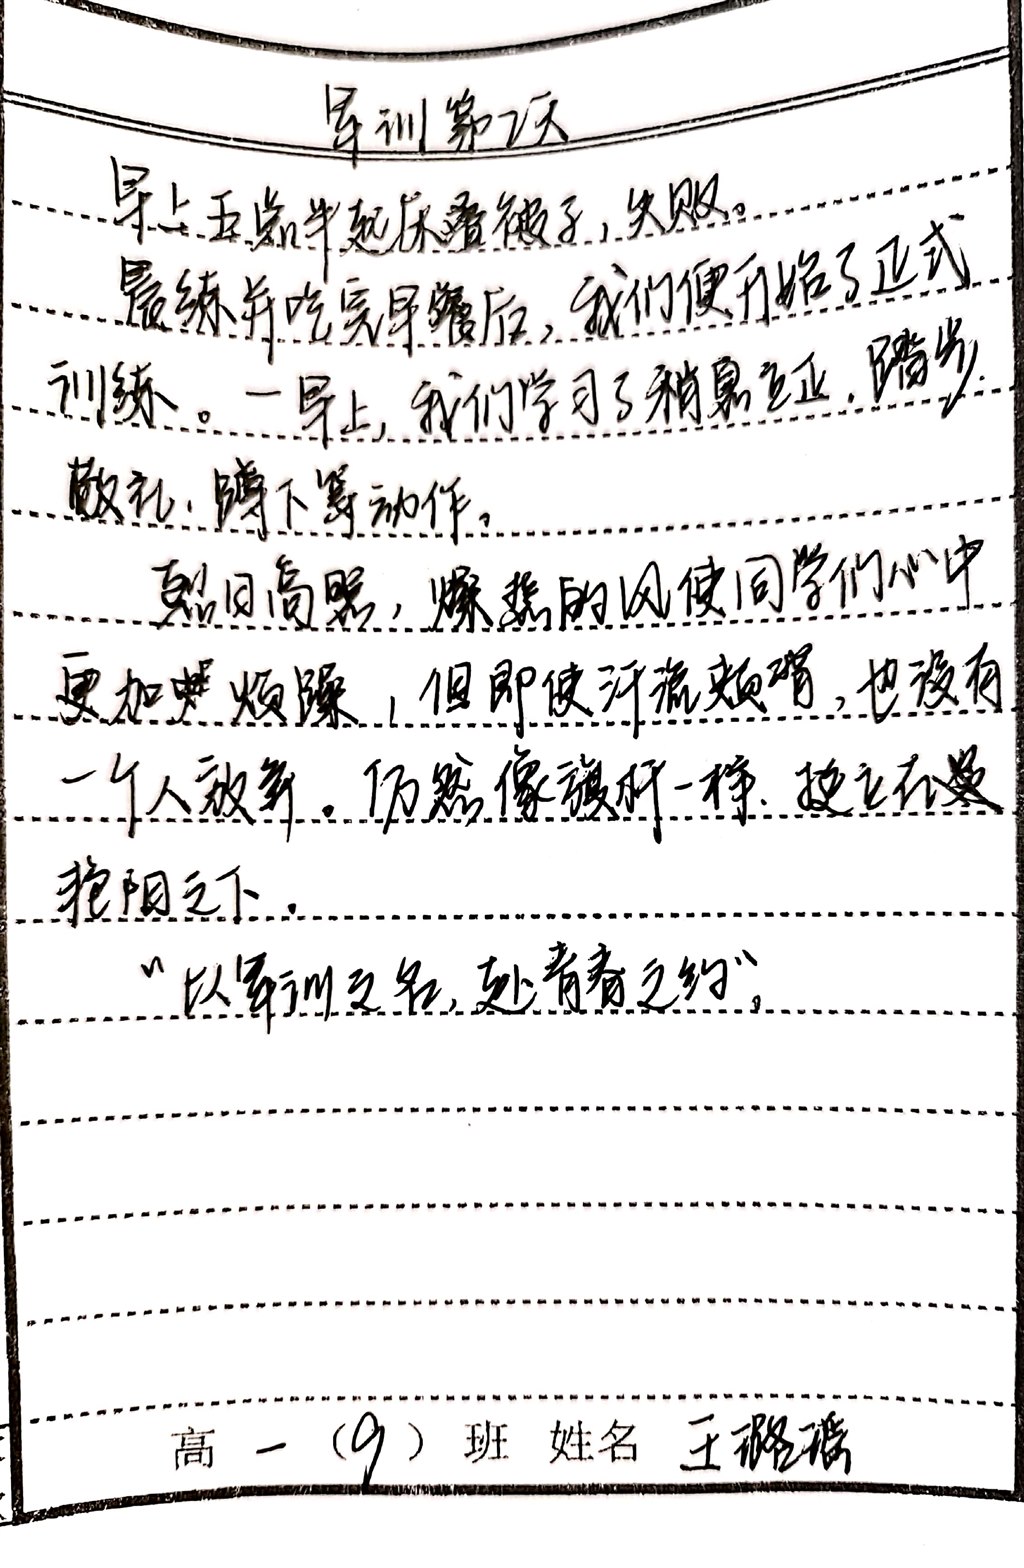 军训第2天
早上五点半起床叠被子，失败。
晨练并吃完早餐后，我们便开始了正式
训练。一早上，我们学习了稍息立正、踏步、
敬礼、蹲下等动作。
烈日高照，燥热的风使同学们心中
更加 烦躁，但即使汗流频啃，也没有
一个人放弃。仍然像旗杆一样、挺立在
艳阳之下。
“以军训之名，赴青春之约”。
高一（9）班 姓名 王璐瑶